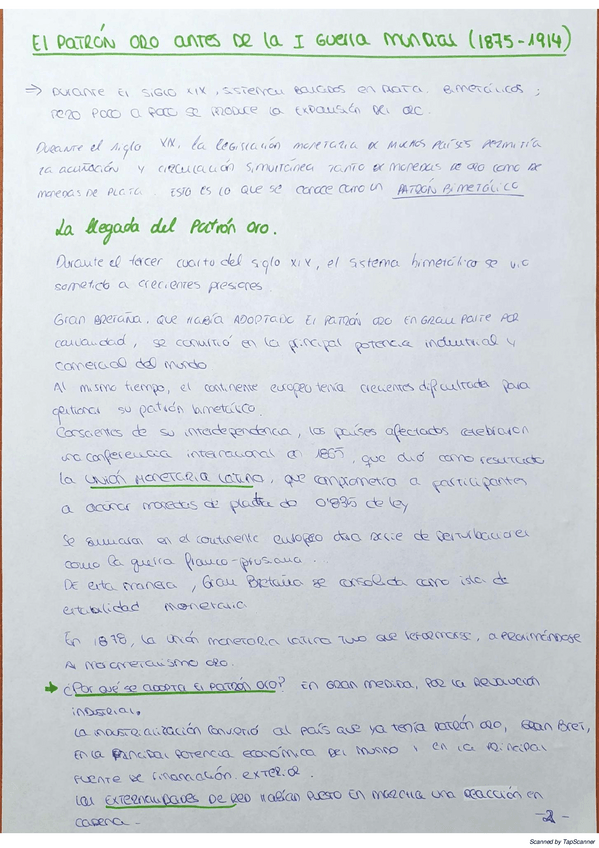 El PATRÓN ORO ANTES DE la I GUERRA MUNDIAL (1875-1914)
⇒ DURANTE El SIGLO XIX, SISTEMAS BASADOS EN PLATA. BIMETÁLICOS;
PERO POCO A POCO SE PRODUCE LA EXPANSIÓN DEL ORO.
Durante el siglo XIX, la legislación monetaria de muchos países permitía
la acuñación y circulación simultánea tanto de monedas de oro como de
monedas de plata. ESTO ES LO QUE SE CONOCE COMO UN PATRÓN BIMETÁLICO
La llegada del Patrón Oro.
Durante el tercer cuarto del siglo XIX, el sistema bimetálico se vio
sometido a crecientes presiones
Gran BRETAÑA, QUE HABÍA ADOPTADO El PATRÓN ORO EN GRAN PARTE POR
casualidad, se convirtió en la principal potencia industrial y
comercial del mundo
Al mismo tiempo, el continente europeo tenía crecientes dificultades para
gestionar su patrón bimetálico.
Conscientes de su interdependencia, los países afectados celebraron
una conferencia internacional en 1865, que dió como resultado
la UNIÓN MONETARIA LATINA, que comprometía a participantes
a acuñar monedas de plata de 0'835 de ley
Se sumaron en el continente europeo otra serie de perturbaciones
como la guerra franco-prusiana...
DE esta manera, Gran Bretaña se consolida como isla de
estabilidad monetaria
En 1878, la unión monetaria latina tuvo que reformarse, aproximándose
Al monometalismo oro.
➔ ¿Por qué se adopta El PATRÓN ORO? EN GRAN MEDIDA, POR LA REVOLUCIÓN
INDUSTRIAL.
LA INDUSTRIALIZACIÓN CONVIRTIÓ al país que ya tenía PATRÓN ORO, GRAN BRET,
EN LA PRINCIPAL POTENCIA ECONÓMICA DEL MUNDO Y EN LA PRINCIPAL
FUENTE DE FINANCIACIÓN EXTERIOR.
Las EXTERNALIDADES DE RED HABÍAN PUESTO EN MARCHA UNA REACCIÓN EN
CADENA.
-2-
Scanned by TapScanner